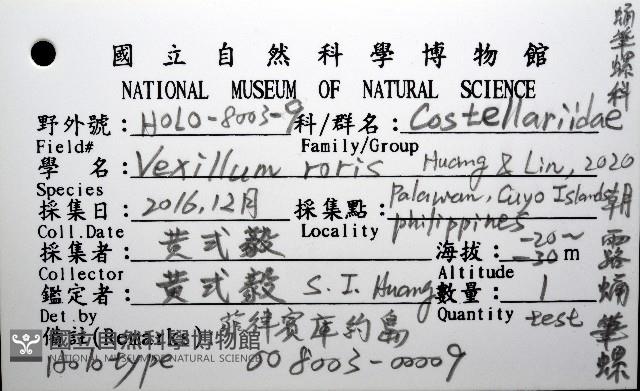 國立自然科學博物館
NATIONAL MUSEUM OF NATURAL SCIENCE
野外號: HOLO-8003-9 科/群名: Costellariidae
Field# Family/Group
學名: Vexillum roris Huang & Lin, 2020
Species
採集日: 2016.12月 採集點: Palawan, Cuyo Islands
Coll.Date Locality philippines
採集者: 黃弍毅 海拔: -20~-30 m
Collector Altitude
鑑定者: 黃弍毅 S. I. Huang 數量: 1
Det.by Quantity test
備註(Remarks) 菲律賓庫約島
Holotype 008003-00009
國立自然科學博物館
NATIONAL MUSEUM OF NATURAL SCIENCE
蛹筆螺科
朝露蛹筆螺